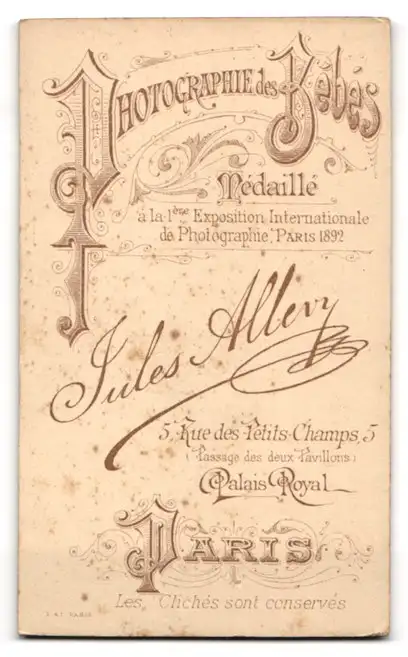 PHOTOGRAPHIE des Bébés
Médaillé
à la 1ère Exposition Internationale
de Photographie, PARIS 1892
Jules Allevy
5, Rue des Petits-Champs, 5
(Passage des deux Pavillons)
Palais Royal
PARIS
Les Clichés sont conservés